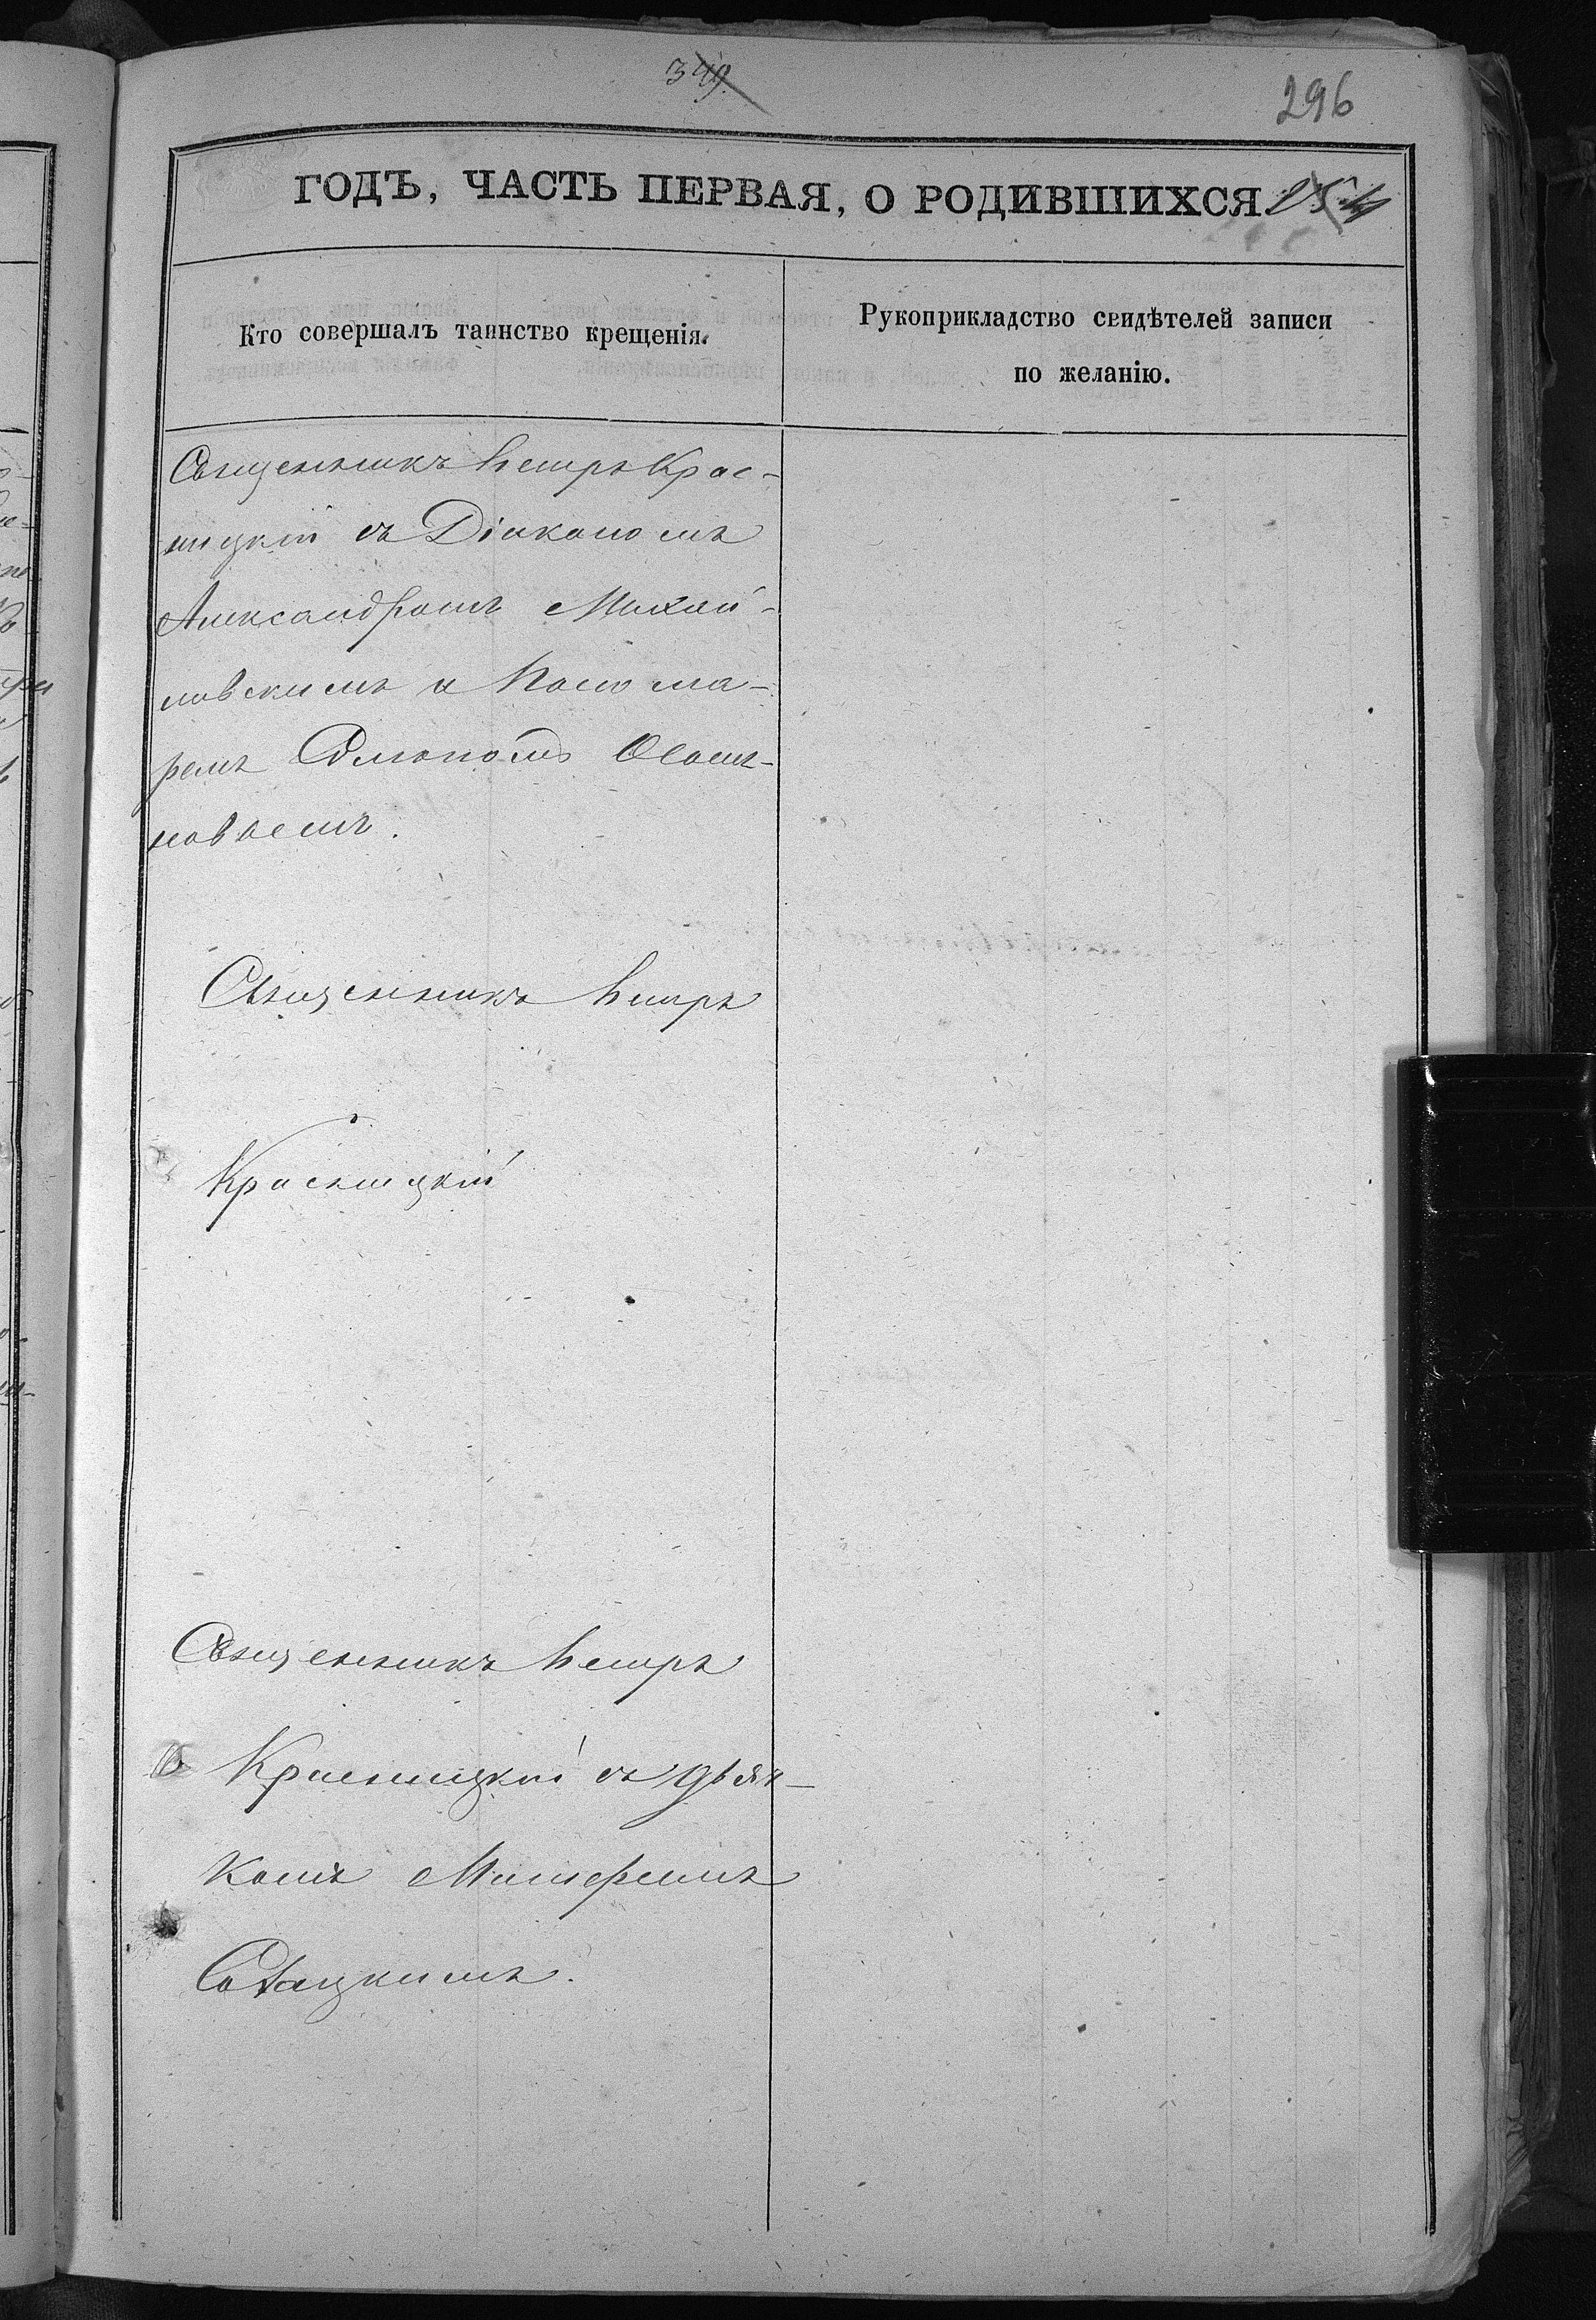 349.
296
ГОДЪ, ЧАСТЬ ПЕРВАЯ, О РОДИВШИХСЯ
Кто совершалъ таинство крещенія.
Рукоприкладство свидѣтелей записи
по желанію.
Священникъ Петръ Крас-
ницкій съ Діакономъ
Александромъ Михай-
ловскимъ и Понома-
ремъ
Священникъ Петръ
Красницкій
Священникъ Петръ
Красницкій съ дьяч-
комъ